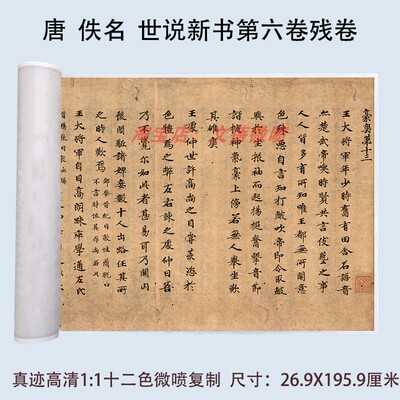 唐 佚名 世说新书第六卷残卷
豪爽第十三
王大將軍年少時舊有田舍名語音
亦楚武帝喚時賢共言伎藝之事
人人皆多有所知唯王都無所關意
色殊惡自言知打鼓吹帝即令取鼓
與於坐振袖而起揚槌奮擊音節
諧捷神氣豪上傍若無人舉坐歎
其雄爽
王處仲世許高尚之目嘗荒恣於
色體為之弊左右諫之處仲曰吾
乃不覺尔如此者甚易耳乃開內
後閤驅諸婢妾數十人出路任其所
之時人歎焉
鄧粲晉紀曰敦性簡脫口
不言財位其存尚若此
王大將軍自目高朗疎率學通左氏
淘宝店
真迹高清1:1十二色微喷复制 尺寸：26.9X195.9厘米